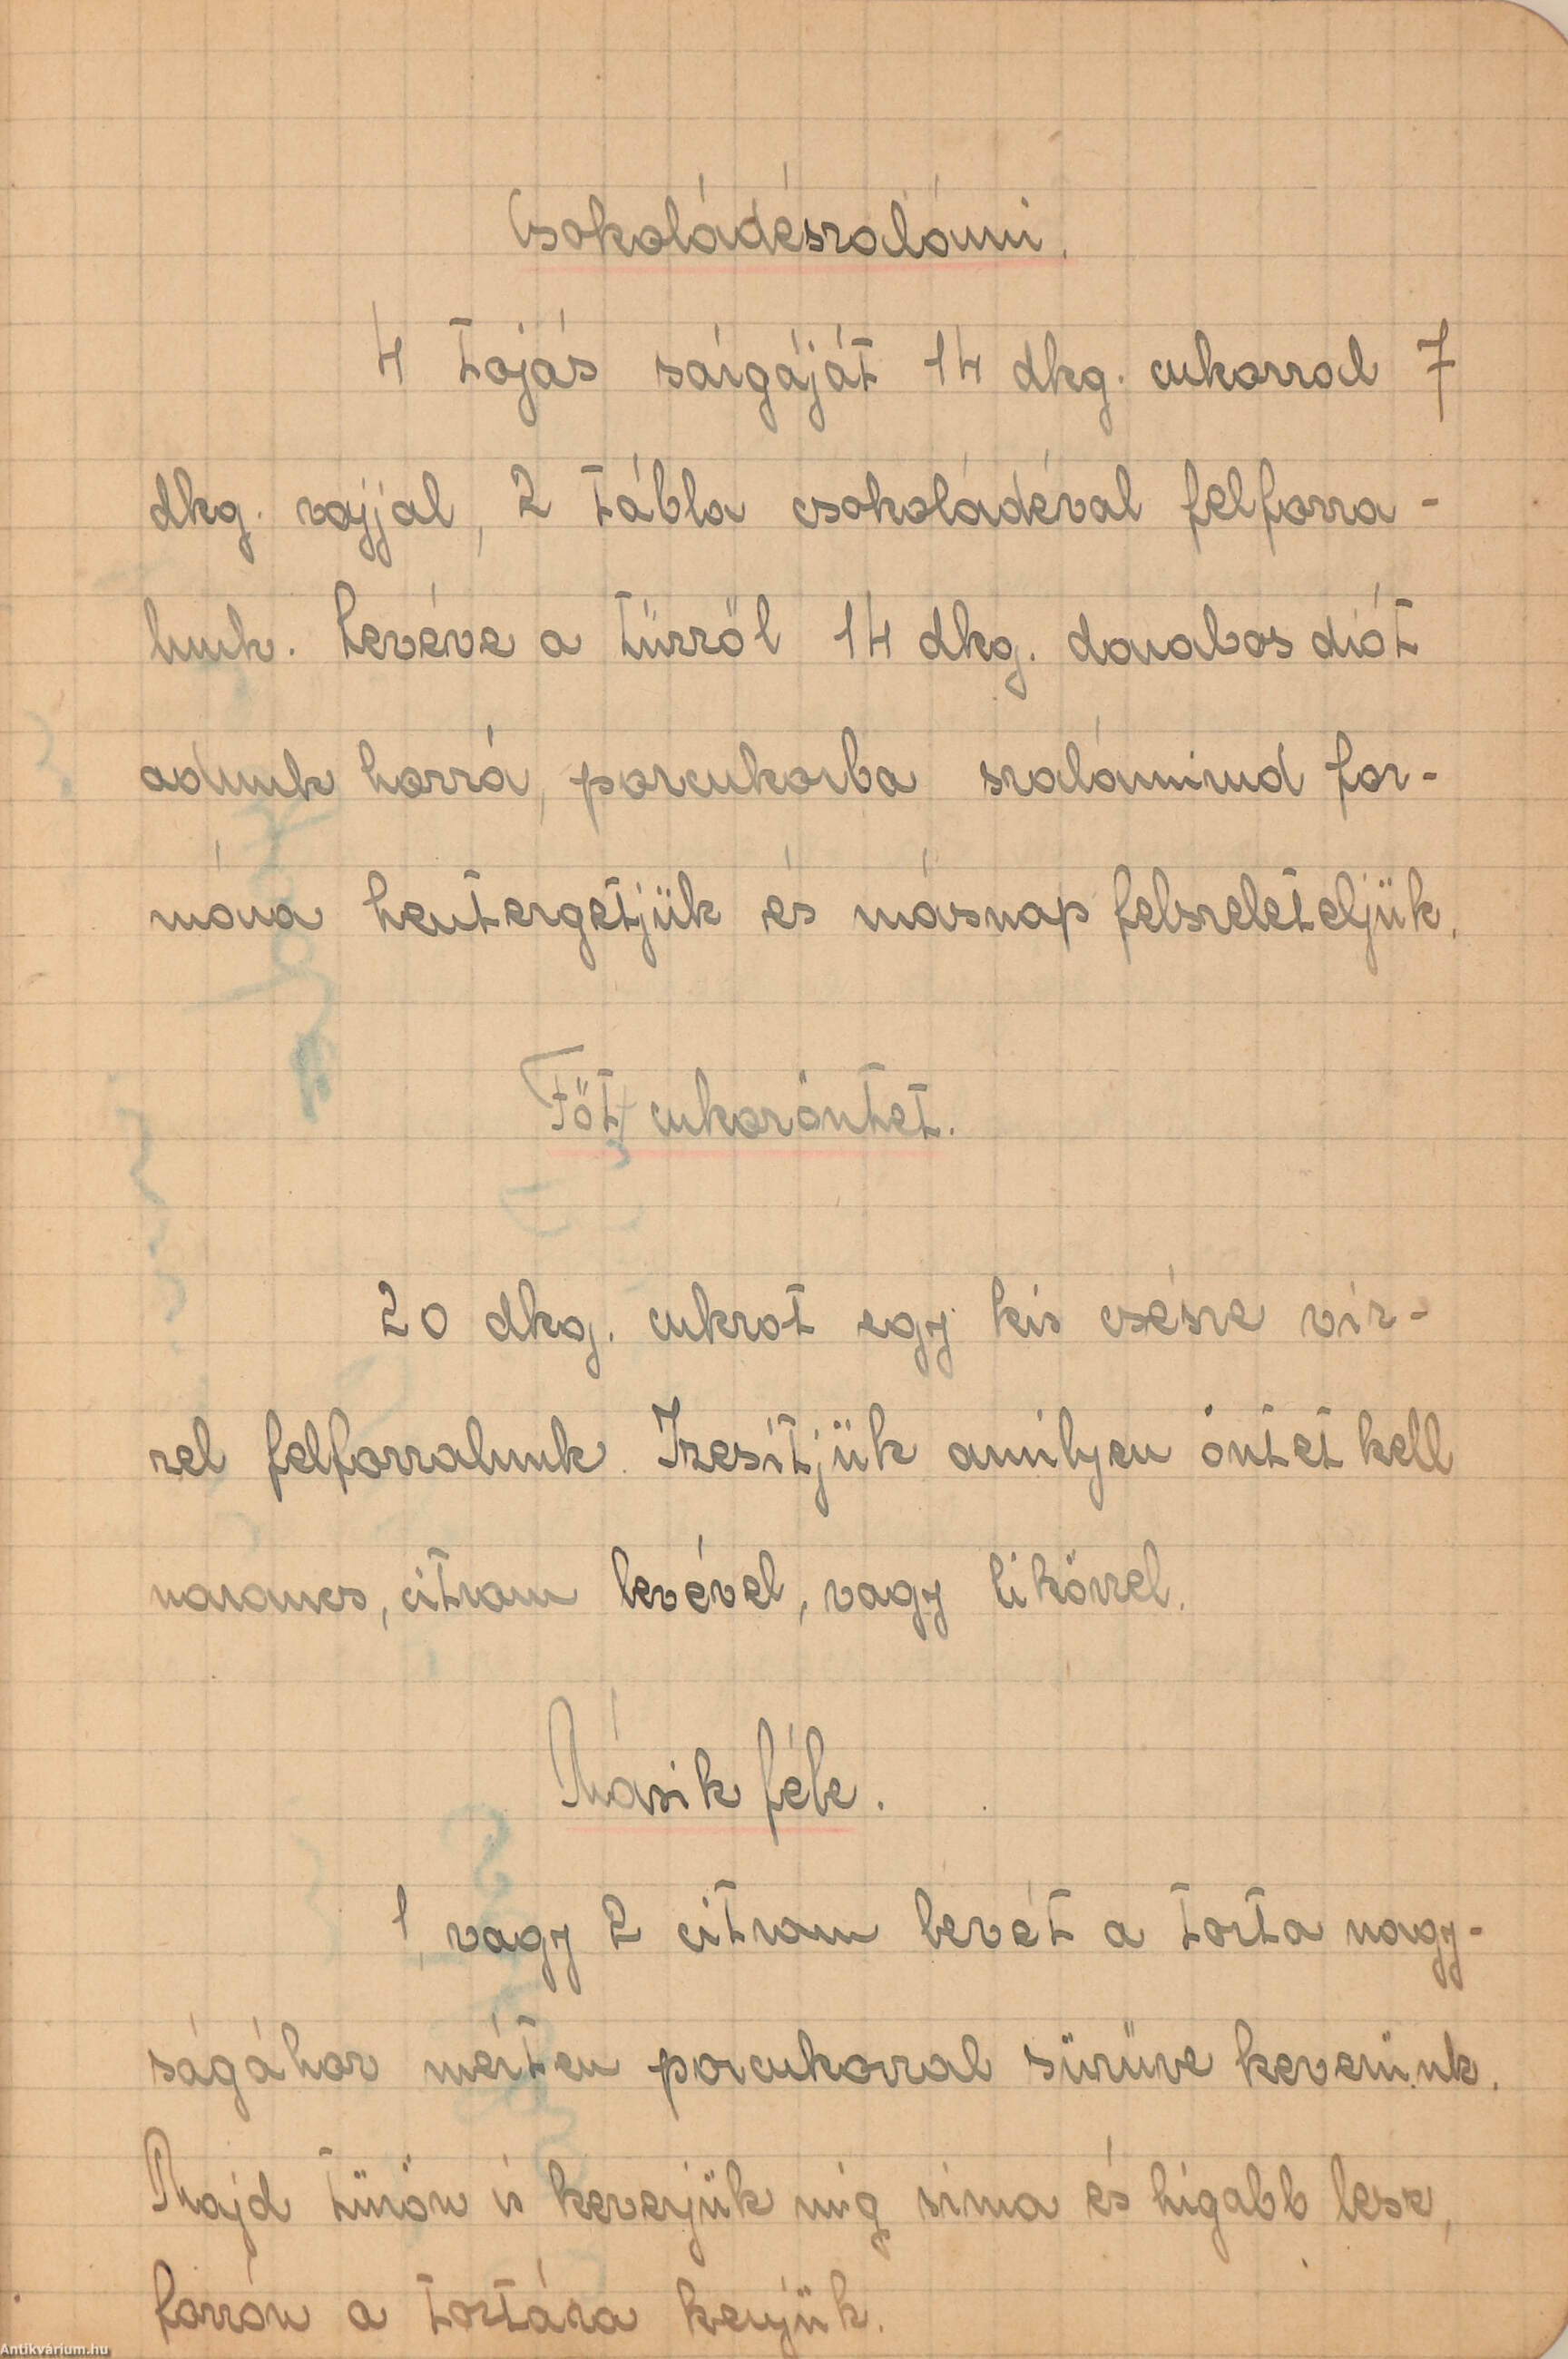 Csokoládészalámi.
4 tojás sárgáját 14 dkg. cukorral 7
dkg. vajjal, 2 tábla csokoládéval felforra-
lunk. Levéve a tűzről 14 dkg. darabos diót
adunk hozzá, porcukorba szalámirud for-
mára hentergetjük és másnap felszeleteljük.
Főtt cukoröntet.
20 dkg. cukrot egy kis csésze víz-
zel felforralunk. Izesítjük amilyen öntet kell
narancs, citrom levével, vagy likőrrel.
Másik féle.
1, vagy 2 citrom levét a torta nagy-
ságához mérten porcukorral sürüre keverünk.
Majd tüzön is keverjük mig sima és higabb lesz,
forrón a tortára kenjük.
Antikvárium.hu